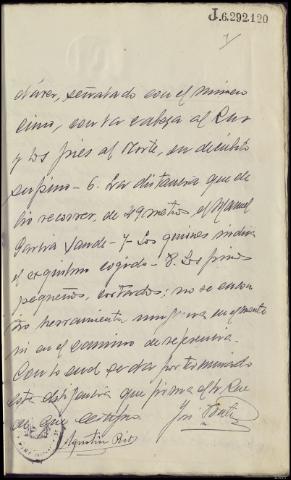 J.6.292.120
dáver, señalado con el número
cinco, con la cabeza al Sur
y los pies al Norte, en decúbito
supino - 6. La distancia que de
bió recorrer, de 49 metros el Manuel
García Sande - 7 - Los quiñones indica
el esquilmo cogido - 8. Los pinos
pequeños, cortados; no se encon
tró herramienta ninguna en el monte
ni en el camino de referencia.
Con lo cual se da por terminada
esta diligencia que firma el Sr. Juez
de que certifico
José
Agustín